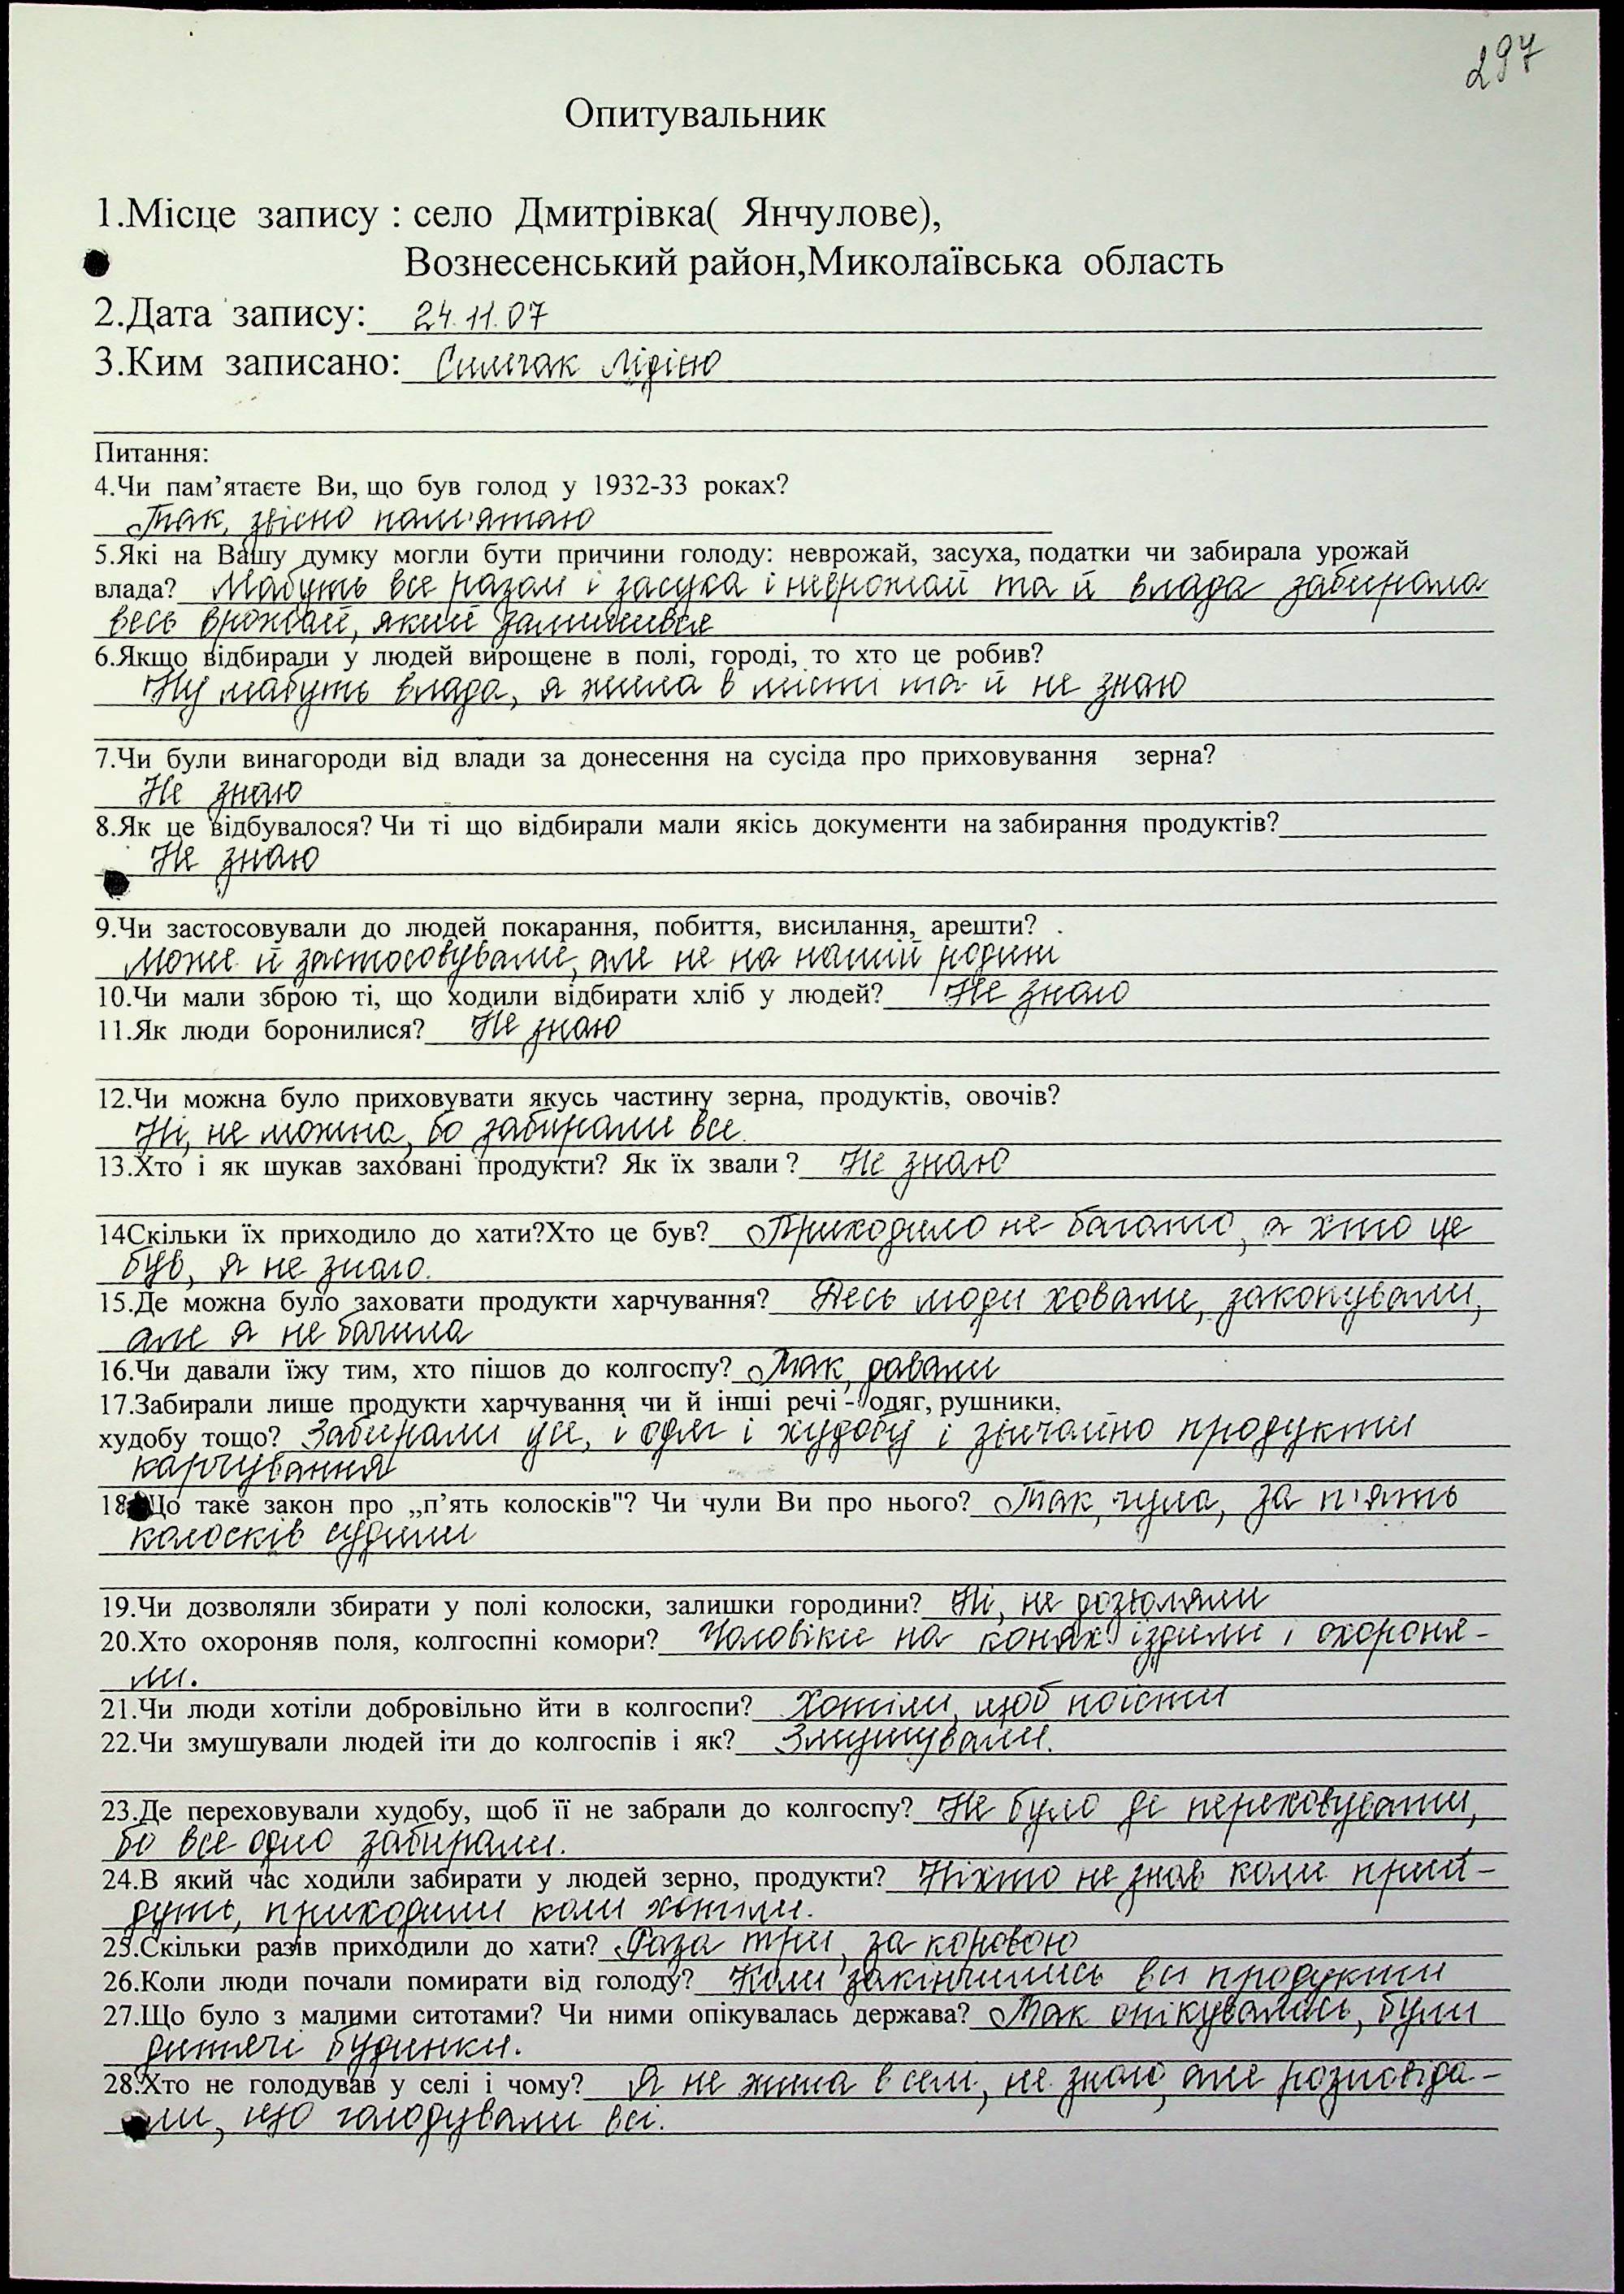 297
Опитувальник
1.Місце запису : село Дмитрівка( Янчулове),
Вознесенський район,Миколаївська область
2.Дата запису: 24.11.07
3.Ким записано: Симчак Лідією
Питання:
4.Чи пам’ятаєте Ви, що був голод у 1932-33 роках?
Так, звісно пам'ятаю
5.Які на Вашу думку могли бути причини голоду: неврожай, засуха, податки чи забирала урожай
влада? Мабуть все разом і засуха і неврожай та й влада забирала
весь врожай, який залишився
6.Якщо відбирали у людей вирощене в полі, городі, то хто це робив?
Ну мабуть влада, я жила в місті та й не знаю
7.Чи були винагороди від влади за донесення на сусіда про приховування зерна?
Не знаю
8.Як це відбувалося? Чи ті що відбирали мали якісь документи на забирання продуктів?
Не знаю
9.Чи застосовували до людей покарання, побиття, висилання, арешти? .
Може й застосовували, але не на нашій родині
10.Чи мали зброю ті, що ходили відбирати хліб у людей? Не знаю
11.Як люди боронилися? Не знаю
12.Чи можна було приховувати якусь частину зерна, продуктів, овочів?
Ні, не можна, бо забирали все.
13.Хто і як шукав заховані продукти? Як їх звали ? Не знаю
14Скільки їх приходило до хати?Хто це був? Приходило не багато, а хто це
був, я не знаю.
15.Де можна було заховати продукти харчування? Десь люди ховали, закопували,
але я не бачила
16.Чи давали їжу тим, хто пішов до колгоспу? Так, давали
17.Забирали лише продукти харчування чи й інші речі - одяг, рушники,
худобу тощо? Забирали усе, і одяг і худобу і звичайно продукти
харчування
18.Що таке закон про „п’ять колосків"? Чи чули Ви про нього? Так, чула, за п'ять
колосків судили
19.Чи дозволяли збирати у полі колоски, залишки городини? Ні, не дозволяли
20.Хто охороняв поля, колгоспні комори? Чоловіки на конях їздили і охороня-
ли.
21.Чи люди хотіли добровільно йти в колгоспи? Хотіли, щоб поїсти
22.Чи змушували людей іти до колгоспів і як? Змушували.
23.Де переховували худобу, щоб її не забрали до колгоспу? Не було де переховувати,
бо все одно забирали.
24.В який час ходили забирати у людей зерно, продукти? Ніхто не знав коли прий-
дуть, приходили коли хотіли.
25.Скільки разів приходили до хати? Раза три, за коровою
26.Коли люди почали помирати від голоду? Коли закінчились всі продукти
27.Що було з малими ситотами? Чи ними опікувалась держава? Так опікувалась, були
дитячі будинки.
28.Хто не голодував у селі і чому? Я не жила в селі, не знаю, але розповіда-
ли, що голодували всі.